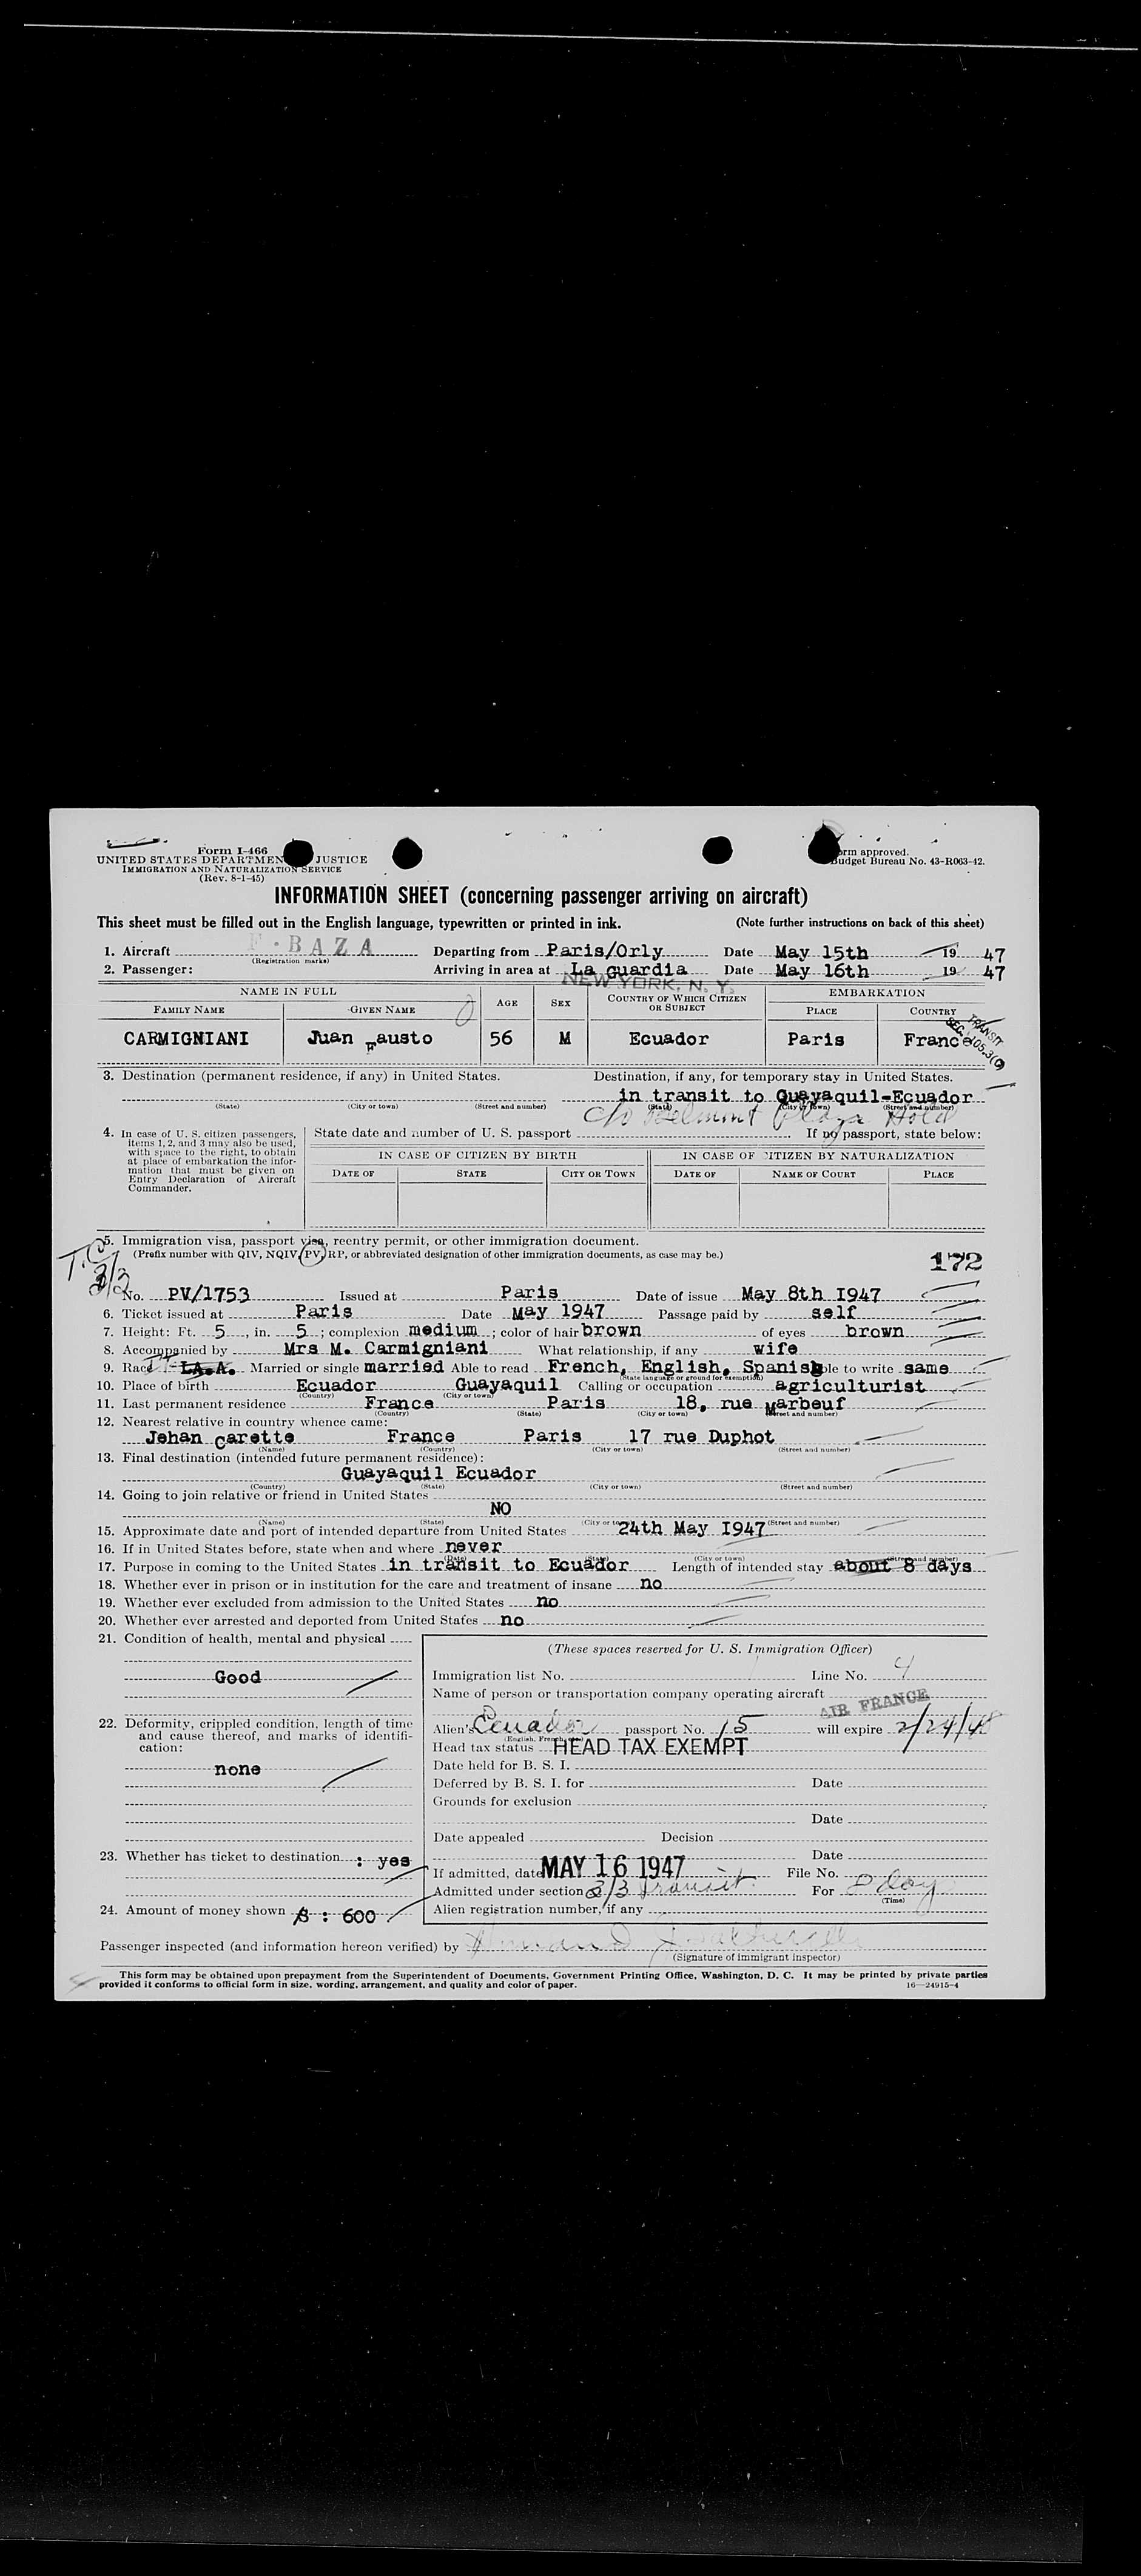 Form I-466
UNITED STATES DEPARTMEN JUSTICE
IMMIGRATION AND NATURALIZATION SERVICE
(Rev. 8-1-45)
orm approved.
Budget Bureau No. 43-R063-42.
INFORMATION SHEET (concerning passenger arriving on aircraft)
This sheet must be filled out in the English language, typewritten or printed in ink. (Note further instructions on back of this sheet)
1. Aircraft F-BAZA Departing from Paris/Orly Date May 15th 19 47
(Registration marks)
2. Passenger: Arriving in area at La Guardia Date May 16th 19 47
NEW YORK, N. Y.
NAME IN FULL AGE SEX COUNTRY OF WHICH CITIZEN OR SUBJECT EMBARKATION
FAMILY NAME GIVEN NAME PLACE COUNTRY
CARMIGNIANI Juan Fausto 56 M Ecuador Paris France
TRANSIT
3. Destination (permanent residence, if any) in United States. Destination, if any, for temporary stay in United States.
in transit to Guayaquil-Ecuador
(State) (City or town) (Street and number) (State) (City or town) (Street and number)
c/o Belmont Plaza Hotel
4. In case of U. S. citizen passengers, items 1, 2, and 3 may also be used, with space to the right, to obtain at place of embarkation the information that must be given on Entry Declaration of Aircraft Commander.
State date and number of U. S. passport If no passport, state below:
IN CASE OF CITIZEN BY BIRTH IN CASE OF CITIZEN BY NATURALIZATION
DATE OF STATE CITY OR TOWN DATE OF NAME OF COURT PLACE
5. Immigration visa, passport visa, reentry permit, or other immigration document.
(Prefix number with QIV, NQIV, PV, RP, or abbreviated designation of other immigration documents, as case may be.)
172
3/3
No. PV/1753 Issued at Paris Date of issue May 8th 1947
6. Ticket issued at Paris Date May 1947 Passage paid by self
7. Height: Ft. 5, in. 5; complexion medium; color of hair brown of eyes brown
8. Accompanied by Mrs M. Carmigniani What relationship, if any wife
9. Race LA.A. Married or single married Able to read French, English, Spanish ble to write same
(State language or ground for exemption)
10. Place of birth Ecuador Guayaquil Calling or occupation agriculturist
(Country) (City or town)
11. Last permanent residence France Paris 18, rue Marbeuf
(Country) (State) (City or town) (Street and number)
12. Nearest relative in country whence came:
Jehan Carette France Paris 17 rue Duphot
(Name) (Country) (City or town) (Street and number)
13. Final destination (intended future permanent residence):
Guayaquil Ecuador
(Country) (State) (City or town) (Street and number)
14. Going to join relative or friend in United States
NO
(Name) (State) (City or town) (Street and number)
15. Approximate date and port of intended departure from United States 24th May 1947
16. If in United States before, state when and where never
(Date) (State) (City or town) (Street and number)
17. Purpose in coming to the United States in transit to Ecuador Length of intended stay about 8 days
18. Whether ever in prison or in institution for the care and treatment of insane no
19. Whether ever excluded from admission to the United States no
20. Whether ever arrested and deported from United States no
21. Condition of health, mental and physical
Good
22. Deformity, crippled condition, length of time and cause thereof, and marks of identification:
none
23. Whether has ticket to destination : yes
24. Amount of money shown $ : 600
(These spaces reserved for U. S. Immigration Officer)
Immigration list No. Line No. 4
Name of person or transportation company operating aircraft AIR FRANCE
Alien's Ecuador passport No. 15 will expire 2/24/48
(English, French, etc.)
Head tax status HEAD TAX EXEMPT
Date held for B. S. I.
Deferred by B. S. I. for Date
Grounds for exclusion
Date
Date appealed Decision
Date
If admitted, date MAY 16 1947 File No.
Admitted under section 3/3 Transit For
(Time)
Alien registration number, if any
Passenger inspected (and information hereon verified) by
(Signature of immigrant inspector)
This form may be obtained upon prepayment from the Superintendent of Documents, Government Printing Office, Washington, D. C. It may be printed by private parties
provided it conforms to official form in size, wording, arrangement, and quality and color of paper. 16—24915-4